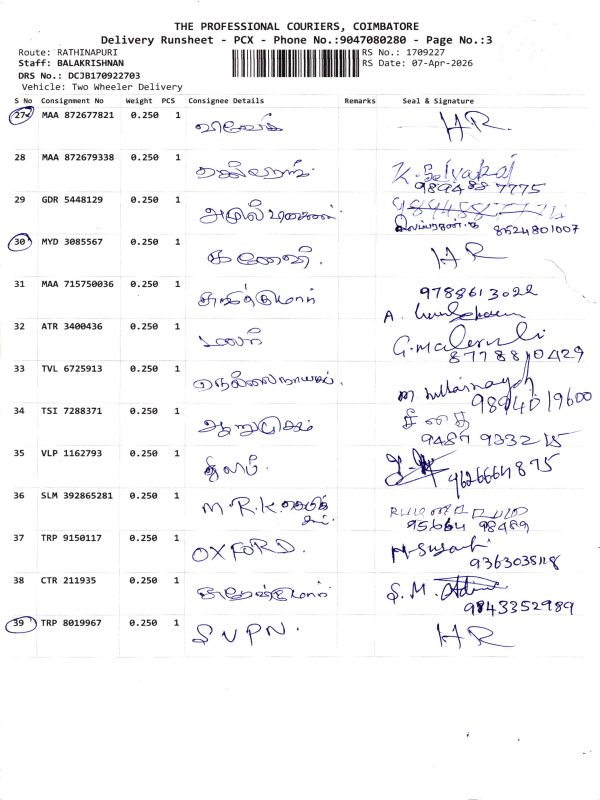 THE PROFESSIONAL COURIERS, COIMBATORE
Delivery Runsheet - PCX - Phone No.:9047080280 - Page No.:3
Route: RATHINAPURI
RS No.: 1709227
Staff: BALAKRISHNAN
RS Date: 07-Apr-2026
DRS No.: DCJB170922703
Vehicle: Two Wheeler Delivery
S No Consignment No Weight PCS Consignee Details Remarks Seal & Signature
27 MAA 872677821 0.250 1 விவேக் HR.
28 MAA 872679338 0.250 1 K. Selvaraj
9894887775
29 GDR 5448129 0.250 1
8524801007
30 MYD 3085567 0.250 1 HR
31 MAA 715750036 0.250 1 9788613022
A.
32 ATR 3400436 0.250 1 மலர் G.
8778810429
33 TVL 6725913 0.250 1 நெல்லைநாயகம். M.
9894019600
34 TSI 7288371 0.250 1 ஆறுமுகம் சீதை
9487 933215
35 VLP 1162793 0.250 1 9626664875
36 SLM 392865281 0.250 1 M.R.K.
95664 98489
37 TRP 9150117 0.250 1 OXFORD.
9363038118
38 CTR 211935 0.250 1 S.M.
9843352989
39 TRP 8019967 0.250 1 SVPN. HR